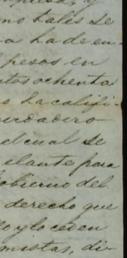 no hales se
a ha de en-
pesos en
tos ochenta
o ha califi
urdadero
el cual se
elante para
obierno del
derecho que
lo y lo cedan
mistas, di-